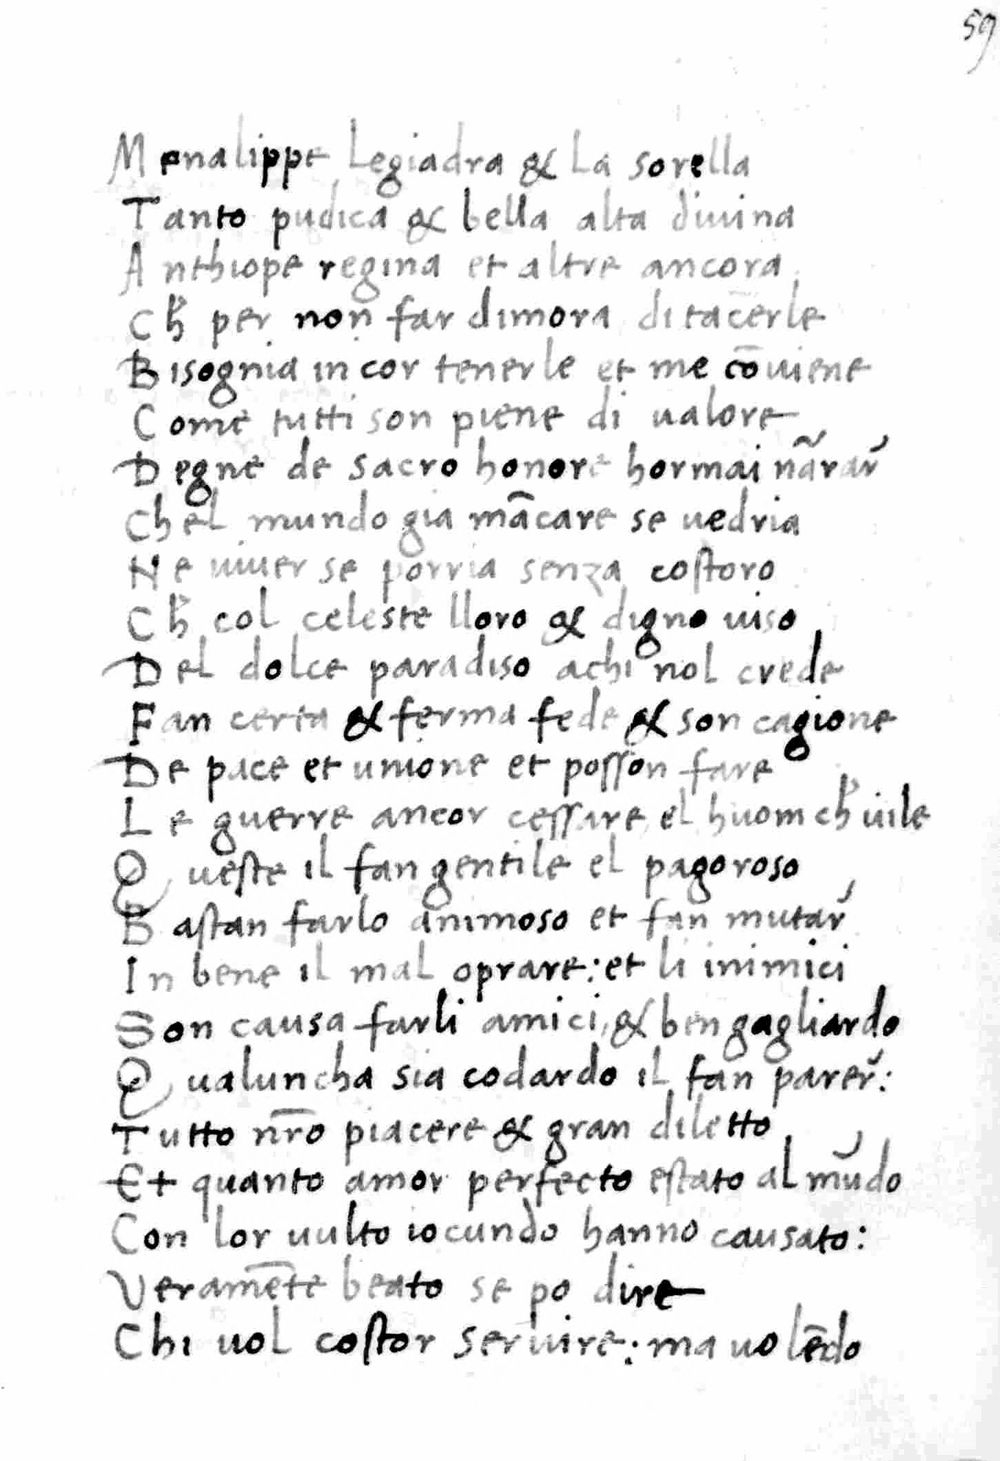 59
Menalippe Legiadra & La sorella
Tanto pudica & bella alta diuina
Anthiope regina et altre ancora
Ch̄ per non far dimora di tacerle
Bisognia in cor tenerle et me cōuiene
Come tutti son piene di ualore
Degne de sacro honore hormai nārar̄
Chel mundo gia mācare se uedria
Ne uiuer se porria senza costoro
Ch̄ col celeste lloro & digno uiso
Del dolce paradiso achi nol crede
Fan certa & ferma fede & son cagione
De pace et unione et posson fare
Le guerre ancor cessare el huom ch̄ uile
Queste il fan gentile el pagoroso
Bastan farlo animoso et fan mutar̄
In bene il mal oprare: et li inimici
Son causa farli amici, & ben gagliardo
Qualuncha sia codardo il fan parer̄:
Tutto nr̄o piacere & gran diletto
Et quanto amor perfecto estato al mūdo
Con lor uulto iocundo hanno causato:
Veramēte beato se po dire
Chi uol costor seruire: ma uolēdo